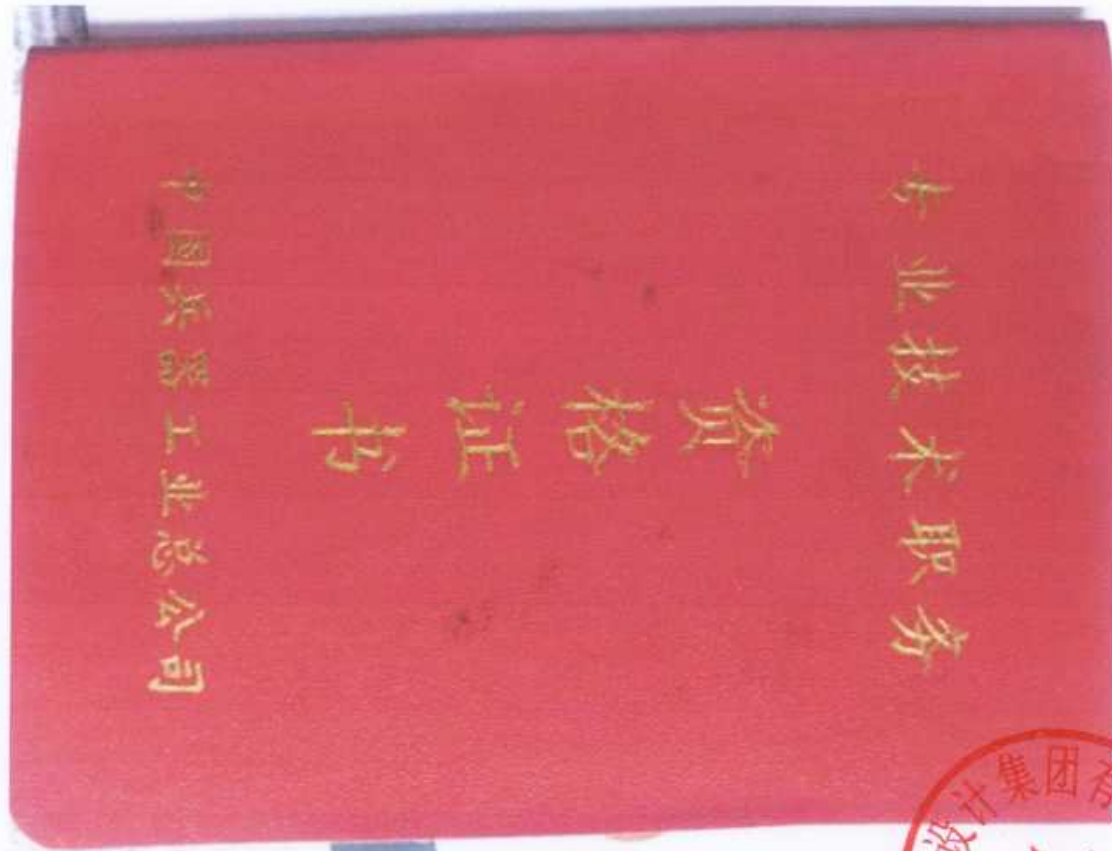 专业技术职务
资格证书
中国兵器工业总公司
设计集团有